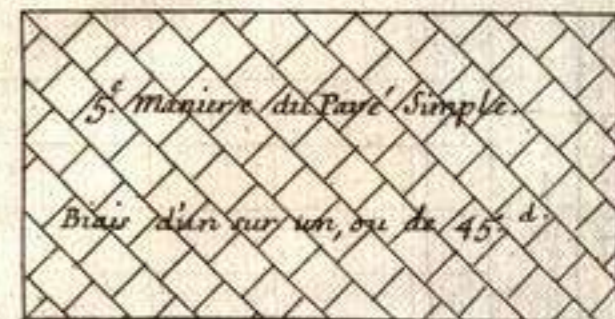 5.e Maniere du Pavé Simple.
Biais d'un sur un, ou de 45. d.